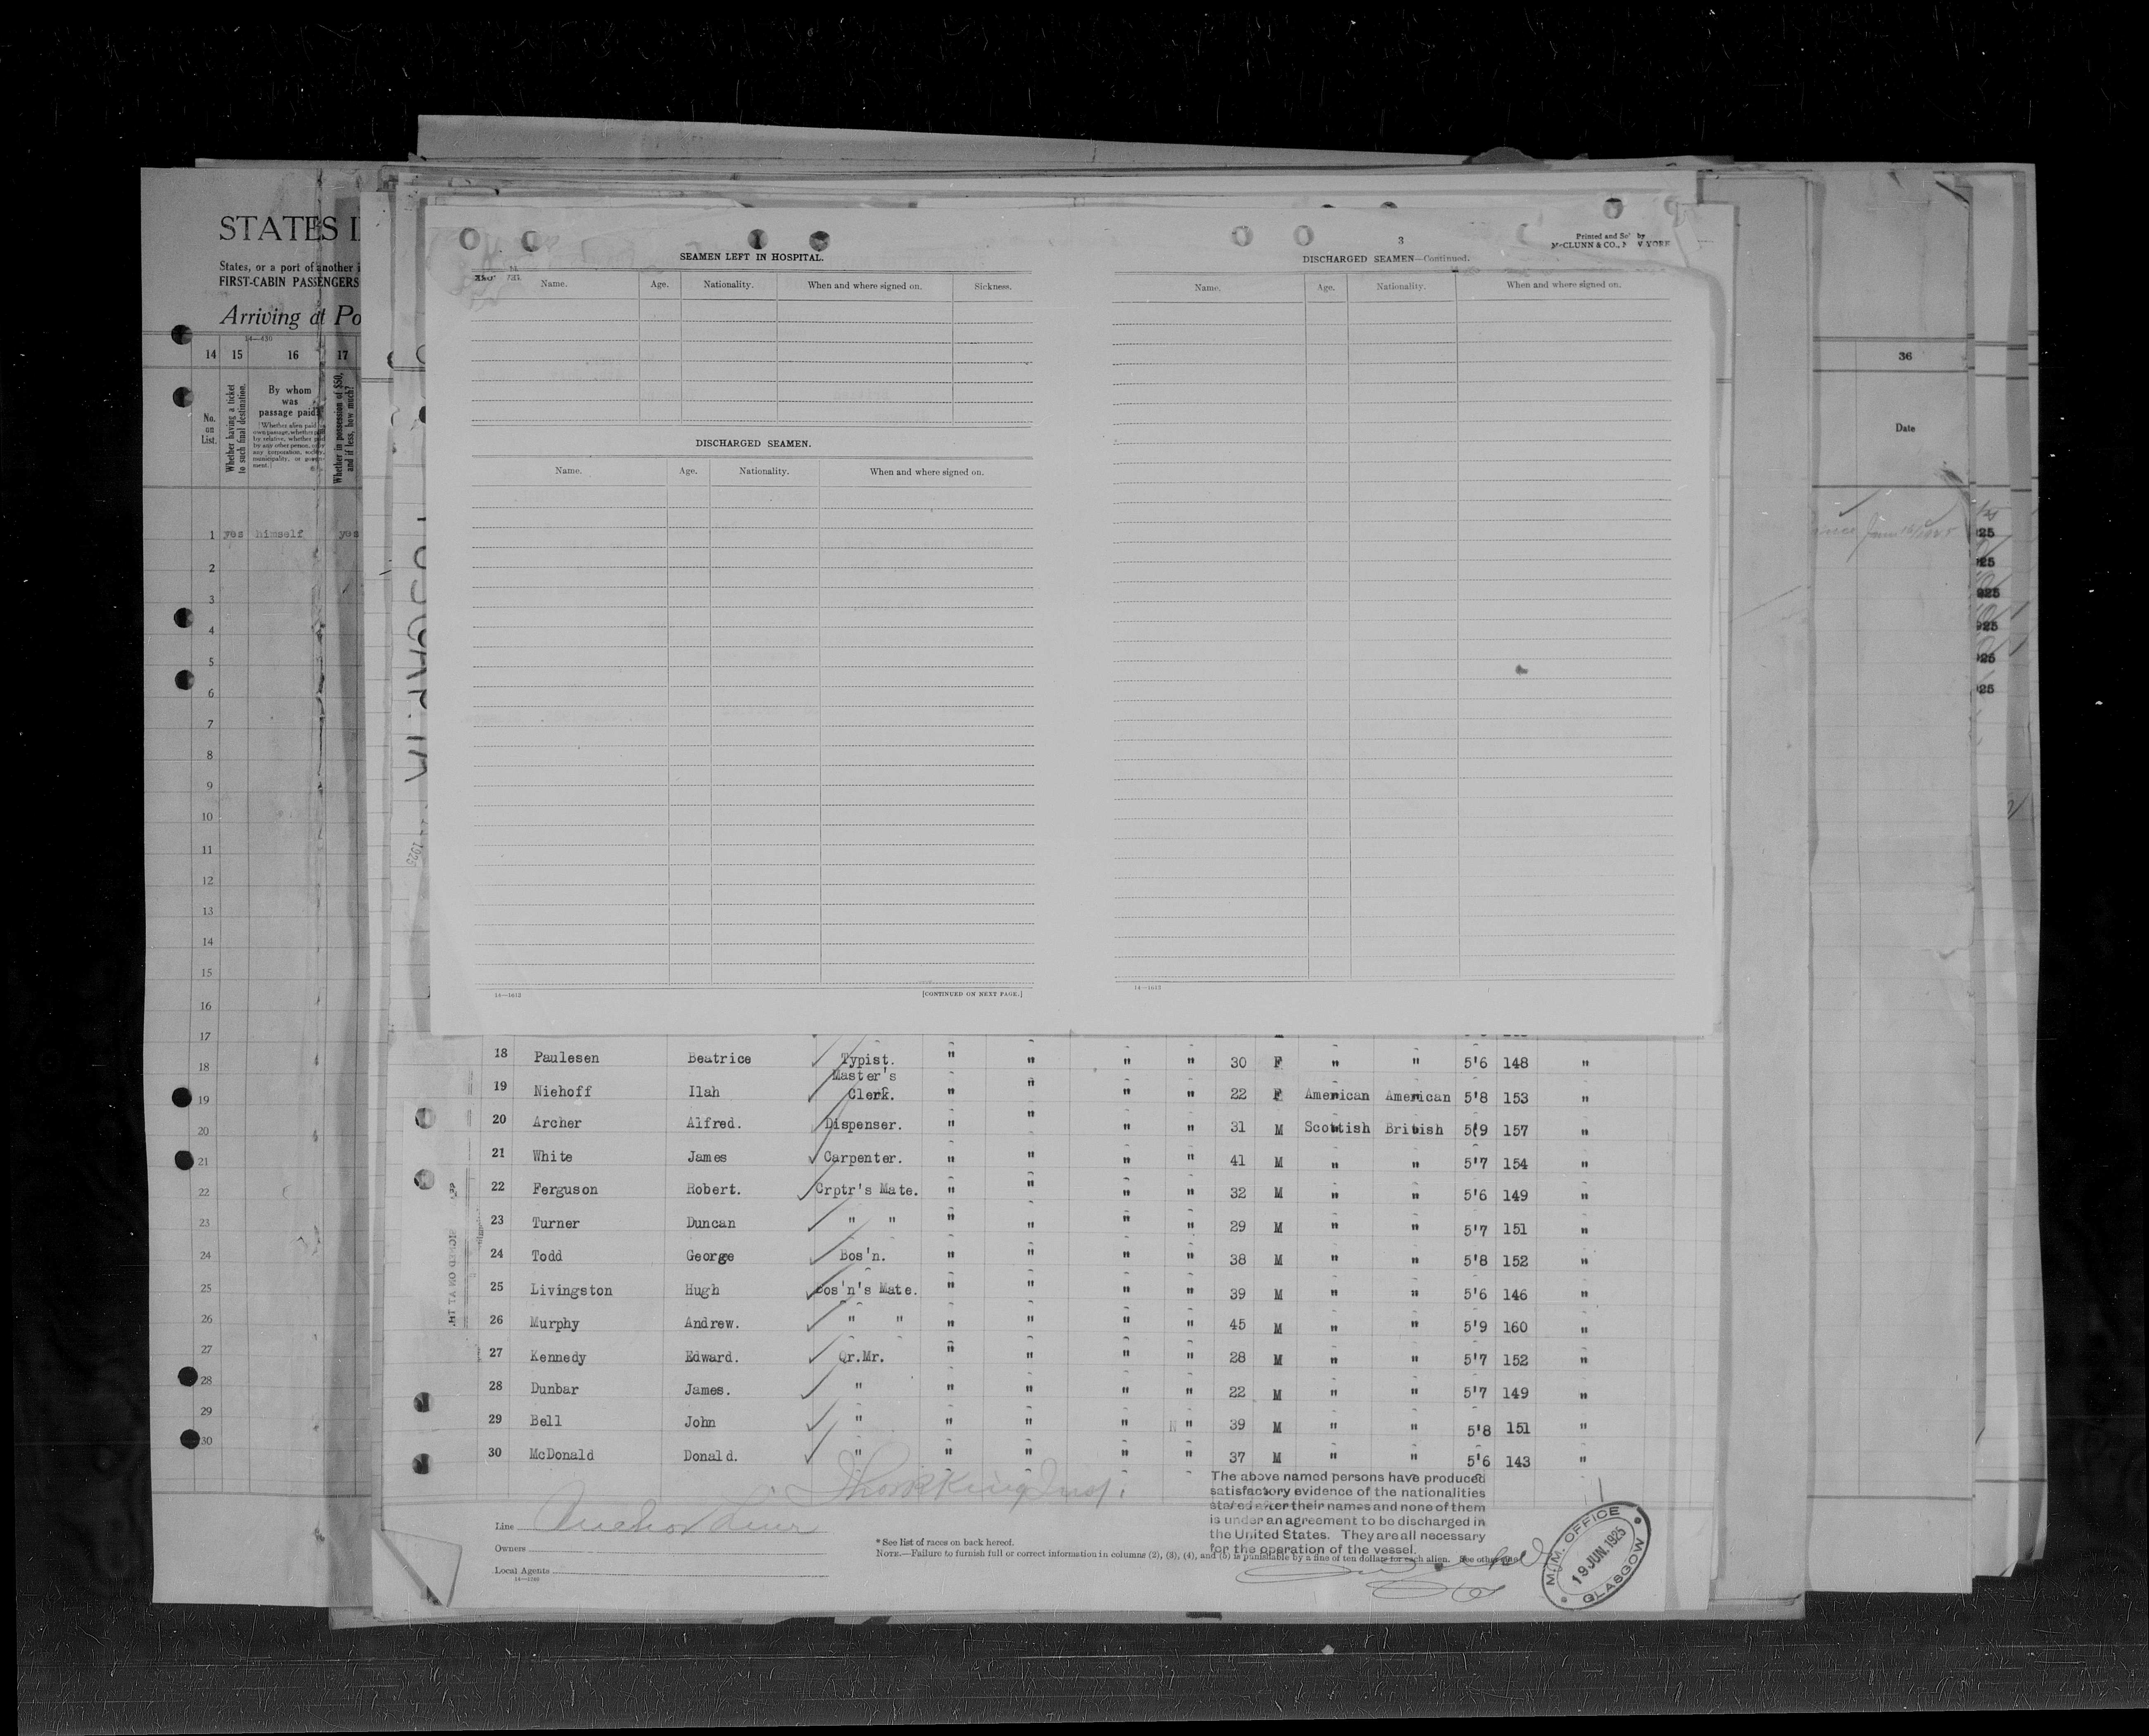 STATES I
States, or a port of another i
FIRST-CABIN PASSENGERS
Arriving at Po
14—430
14 15 16 17
No. on List.
Whether having a ticket to such final destination.
By whom was passage paid?
(Whether alien paid own passage, whether paid by relative, whether paid by any other person, or by any corporation, society, municipality, or government.)
Whether in possession of $50, and if less, how much?
1 yes himself yes
2
3
4
5
6
7
8
9
10
11
12
13
14
15
16
17
18
19
20
21
22
23
24
25
26
27
28
29
30
1925
SEAMEN LEFT IN HOSPITAL.
Name. Age. Nationality. When and where signed on. Sickness.
DISCHARGED SEAMEN.
Name. Age. Nationality. When and where signed on.
14—1612
[CONTINUED ON NEXT PAGE.]
3
Printed and Sold by
McCLUNN & CO., NEW YORK
DISCHARGED SEAMEN—Continued.
Name. Age. Nationality. When and where signed on.
14—1613
36
Date
June 16/1925
25
25
925
925
25
25
18 Paulesen Beatrice Typist. " " " " 30 F " " 5'6 148 "
19 Niehoff Ilah Master's Clerk. " " " " 22 F American American 5'8 153 "
20 Archer Alfred. Dispenser. " " " " 31 M Scottish British 5'9 157 "
21 White James Carpenter. " " " " 41 M " " 5'7 154 "
22 Ferguson Robert. Crptr's Mate. " " " " 32 M " " 5'6 149 "
23 Turner Duncan " " " " " " 29 M " " 5'7 151 "
24 Todd George Bos'n. " " " " 38 M " " 5'8 152 "
25 Livingston Hugh Bos'n's Mate. " " " " 39 M " " 5'6 146 "
26 Murphy Andrew. " " " " " " 45 M " " 5'9 160 "
27 Kennedy Edward. Qr.Mr. " " " " 28 M " " 5'7 152 "
28 Dunbar James. " " " " " 22 M " " 5'7 149 "
29 Bell John " " " " " 39 M " " 5'8 151 "
30 McDonald Donald. " " " " " 37 M " " 5'6 143 "
The above named persons have produced
satisfactory evidence of the nationalities
stated after their names and none of them
is under an agreement to be discharged in
the United States. They are all necessary
for the operation of the vessel.
Line Anchor Line
Owners
Local Agents
14—1240
* See list of races on back hereof.
NOTE.—Failure to furnish full or correct information in columns (2), (3), (4), and (5) is punishable by a fine of ten dollars for each alien. See other side
M.M. OFFICE
19 JUN. 1925
GLASGOW